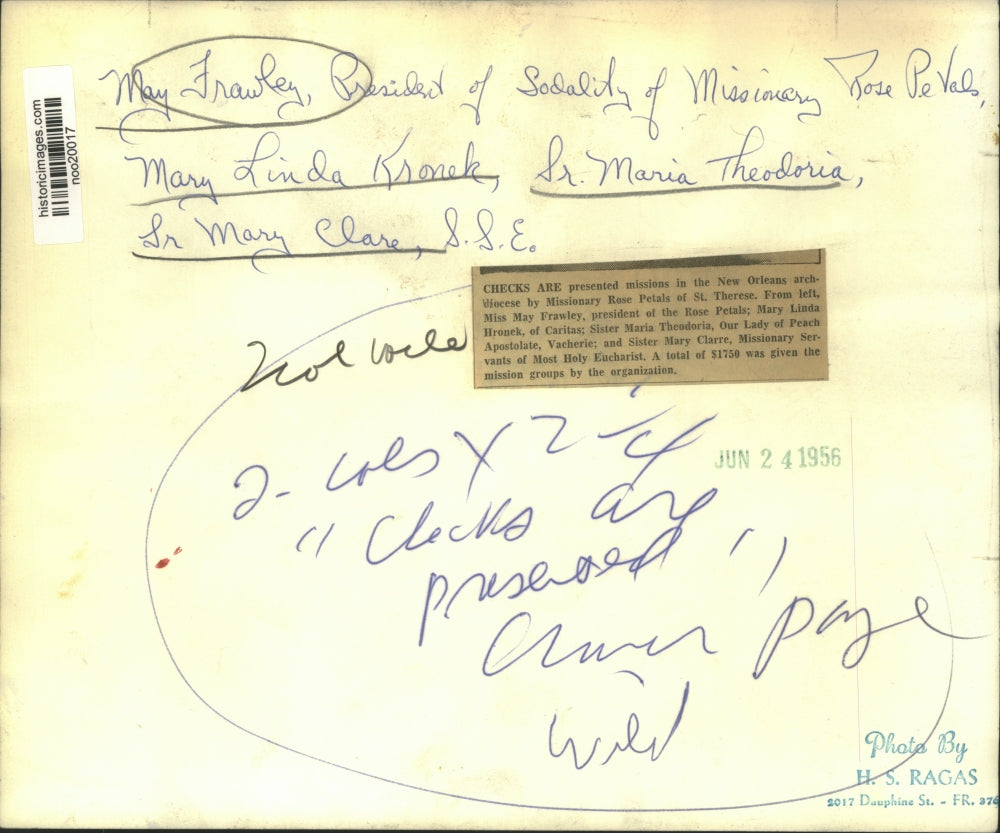 historicimages.com
noo20017
May Frawley, President of Sodality of Missionary Rose Petals,
Mary Linda Kronek, Sr. Maria Theodoria,
Sr Mary Clare, S.S.E.
CHECKS ARE presented missions in the New Orleans arch-
diocese by Missionary Rose Petals of St. Therese. From left,
Miss May Frawley, president of the Rose Petals; Mary Linda
Hronek, of Caritas; Sister Maria Theodoria, Our Lady of Peach
Apostolate, Vacherie; and Sister Mary Clarre, Missionary Ser-
vants of Most Holy Eucharist. A total of $1750 was given the
mission groups by the organization.
2- cols X 2
JUN 24 1956
"Checks are
presented"
page
Wild
Photo By
H. S. RAGAS
2017 Dauphine St. - FR. 376